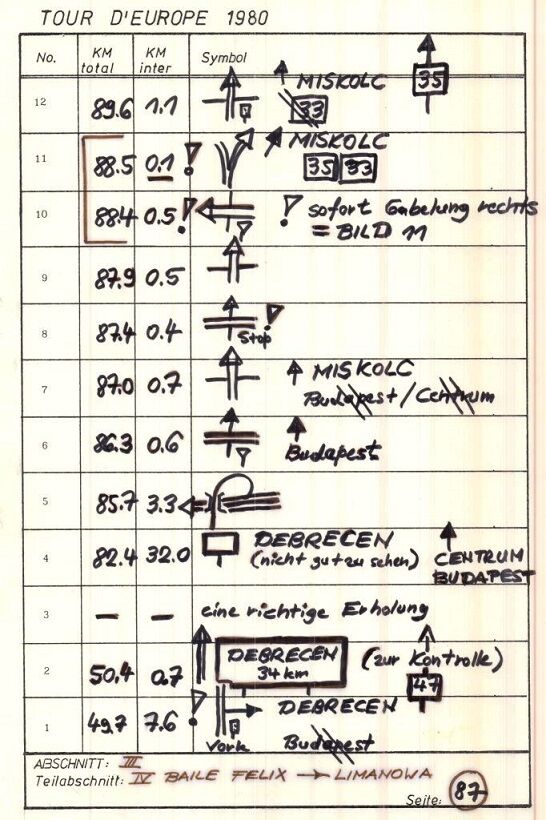 TOUR D'EUROPE 1980
No. KM total KM inter Symbol
12 89.6 1.1 MISKOLC 33 35
11 88.5 0.1 ! MISKOLC 35 33
10 88.4 0.5 ! ! sofort Gabelung rechts
= BILD 11
9 87.9 0.5
8 87.4 0.4 Stop !
7 87.0 0.7 MISKOLC
Budapest / Centrum
6 86.3 0.6 Budapest
5 85.7 3.3
4 82.4 32.0 DEBRECEN
(nicht gut zu sehen) CENTRUM
BUDAPEST
3 — — eine richtige Erholung
2 50.4 0.7 DEBRECEN
34 km (zur Kontrolle) 47
1 49.7 7.6 ! DEBRECEN
Vork Budapest
ABSCHNITT: III
Teilabschnitt: IV BAILE FELIX → LIMANOWA
Seite: 87